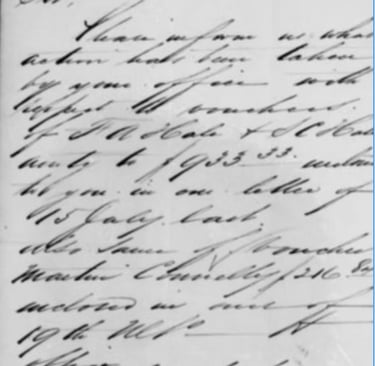 Sir,
Please inform us what
action has been taken
by your office with
respect to vouchers
of F A Hale & S C Hale
amtg to $933.33. enclosed
to you in our letter of
15 July last
also same of voucher
Martin Connelly $216.
enclosed in ours of
19th